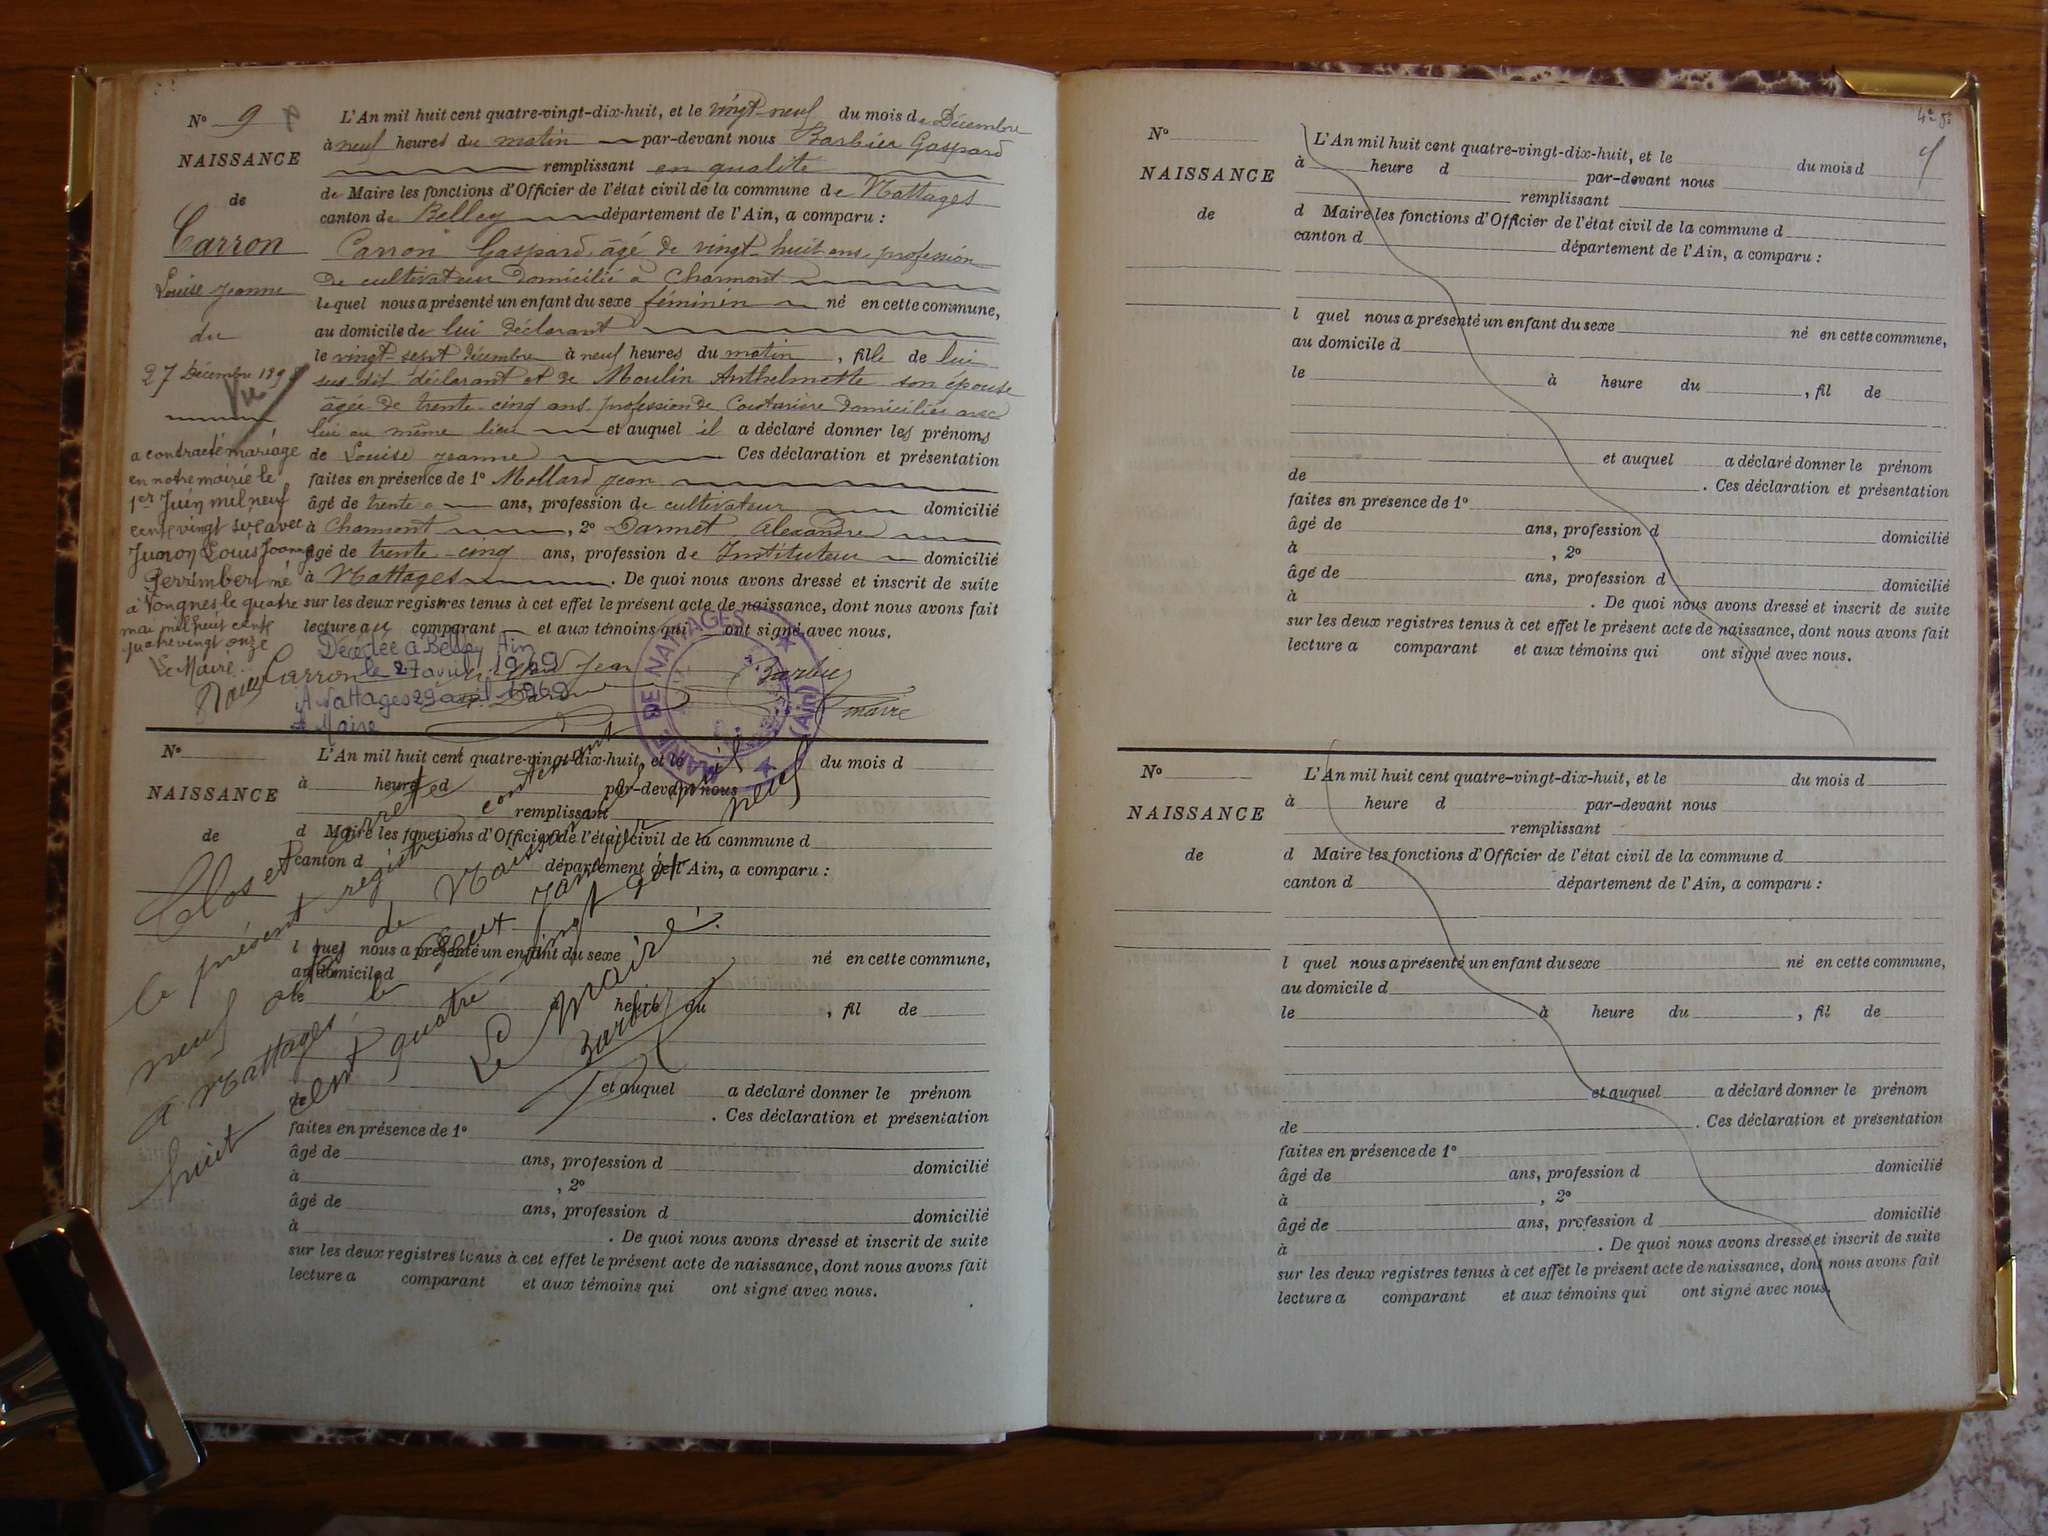 N° 9
NAISSANCE
de
Carron
Louise Jeanne
du
27 Décembre 189
a contracté mariage
en notre mairie le
1er Juin mil neuf
cent vingt six avec
Louis Joanny
Perrimbert né
à Vongnes le quatre
mai mil huit cent
quatre vingt onze
Le Maire
L'An mil huit cent quatre-vingt-dix-huit, et le vingt-neuf du mois de Décembre
à neuf heures du matin par-devant nous Barbier Gaspard
remplissant en qualité
de Maire les fonctions d'Officier de l'état civil de la commune de Nattages
canton de Belley département de l'Ain, a comparu :
Carron Gaspard, âgé de vingt-huit ans, profession
de cultivateur domicilié à Charmont
lequel nous a présenté un enfant du sexe féminin né en cette commune,
au domicile de lui déclarant
le vingt-sept décembre à neuf heures du matin, fille de lui
sus dit déclarant et de Moulin Anthelmette son épouse
âgée de trente-cinq ans, profession de Couturière domiciliée avec
lui au même lieu et auquel il a déclaré donner les prénoms
de Louise Jeanne Ces déclaration et présentation
faites en présence de 1° Mollard Jean
âgé de trente ans, profession de cultivateur domicilié
à Charmont, 2° Dannet Alexandre
âgé de trente-cinq ans, profession de Instituteur domicilié
à Nattages. De quoi nous avons dressé et inscrit de suite
sur les deux registres tenus à cet effet le présent acte de naissance, dont nous avons fait
lecture au comparant et aux témoins qui ont signé avec nous.
Décédée à Belley Ain
le 27 avril 1969
A Nattages 29 avril 1969
Le Maire
Carron Jean Barbier
maire
MAIRIE DE NATTAGES (Ain)
N°
NAISSANCE
de
L'An mil huit cent quatre-vingt-dix-huit, et le du mois d
à heure d par-devant nous
remplissant
d Maire les fonctions d'Officier de l'état civil de la commune d
canton d département de l'Ain, a comparu :
l quel nous a présenté un enfant du sexe né en cette commune,
au domicile d
le à heure du , fil de
et auquel a déclaré donner le prénom
de . Ces déclaration et présentation
faites en présence de 1°
âgé de ans, profession d domicilié
à , 2°
âgé de ans, profession d domicilié
à . De quoi nous avons dressé et inscrit de suite
sur les deux registres tenus à cet effet le présent acte de naissance, dont nous avons fait
lecture a comparant et aux témoins qui ont signé avec nous.
Clos et arrêté
le présent registre contenant
neuf actes de Naissance
à Nattages, le janvier mil
huit cent quatre-vingt dix neuf
Le Maire
Barbier
4e f
N°
NAISSANCE
de
L'An mil huit cent quatre-vingt-dix-huit, et le du mois d
à heure d par-devant nous
remplissant
d Maire les fonctions d'Officier de l'état civil de la commune d
canton d département de l'Ain, a comparu :
l quel nous a présenté un enfant du sexe né en cette commune,
au domicile d
le à heure du , fil de
et auquel a déclaré donner le prénom
de . Ces déclaration et présentation
faites en présence de 1°
âgé de ans, profession d domicilié
à , 2°
âgé de ans, profession d domicilié
à . De quoi nous avons dressé et inscrit de suite
sur les deux registres tenus à cet effet le présent acte de naissance, dont nous avons fait
lecture a comparant et aux témoins qui ont signé avec nous.
N°
NAISSANCE
de
L'An mil huit cent quatre-vingt-dix-huit, et le du mois d
à heure d par-devant nous
remplissant
d Maire les fonctions d'Officier de l'état civil de la commune d
canton d département de l'Ain, a comparu :
l quel nous a présenté un enfant du sexe né en cette commune,
au domicile d
le à heure du , fil de
et auquel a déclaré donner le prénom
de . Ces déclaration et présentation
faites en présence de 1°
âgé de ans, profession d domicilié
à , 2°
âgé de ans, profession d domicilié
à . De quoi nous avons dressé et inscrit de suite
sur les deux registres tenus à cet effet le présent acte de naissance, dont nous avons fait
lecture a comparant et aux témoins qui ont signé avec nous.